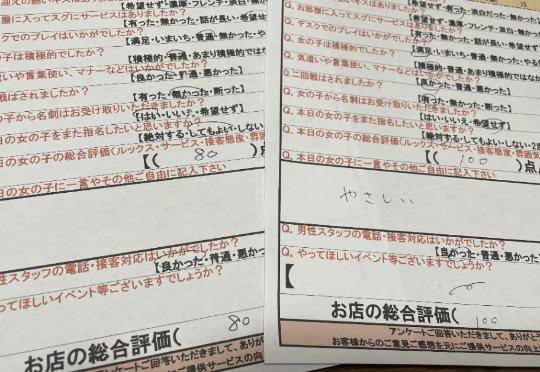 【希望せず・濃厚・フレンチ・淡白・無かっ
お部屋に入ってスグにサービスはありましたか?
【有った・無かった・話が長い・希望せず
デスクでのプレイはいかがでしたか?
【満足・いまいち・普通・無かった・やる
女の子は積極的でしたか?
【積極的・普通・あまり積極的ではな
気遣いや言葉使い、マナーなどはいかがでしたか?
【良かった・普通・悪かった】
二回戦はされましたか?
【有った・無かった・断った】
女の子から名刺はお受け取りいただきましたか?
【はい・いいえ・希望せず】
本日の女の子をまた指名したいと思いますか?
【絶対する・してもよい・しない
本日の女の子の総合評価(ルックス・サービス・接客態度・雰囲気
【( 80 )点
本日の女の子に一言やその他ご自由に記入下さい
男性スタッフの電話・接客対応はいかがでしたか?
【良かった・普通・悪かっ
やってほしいイベント等ございますでしょうか?
お店の総合評価( 80
アンケートご回答いただきまして、
お客様からのご意見ご感想を元にご提供サービスの向
Q. お部屋に入ってスグにサービスはありましたか?
【有った・無かった・話が長い・希望せ
Q. デスクでのプレイはいかがでしたか?
【満足・いまいち・普通・無かった・や
Q. 女の子は積極的でしたか?
【積極的・普通・あまり積極的では
Q. 気遣いや言葉使い、マナーなどはいかがでしたか?
【良かった・普通・悪かった】
Q. 二回戦はされましたか?
【有った・無かった・断った】
Q. 女の子から名刺はお受け取りいただきましたか?
【はい・いいえ・希望せず】
Q. 本日の女の子をまた指名したいと思いますか?
【絶対する・してもよい・しない
Q. 本日の女の子の総合評価(ルックス・サービス・接客態度・雰囲気
【( 100 )点
Q. 本日の女の子に一言やその他ご自由に記入下さい
やさしい
Q. 男性スタッフの電話・接客対応はいかがでしたか?
【良かった・普通・悪かった】
Q. やってほしいイベント等ございますでしょうか?
【
お店の総合評価( 100
アンケートご回答いただきまして、ありがと
お客様からのご意見ご感想を元にご提供サービスの向上